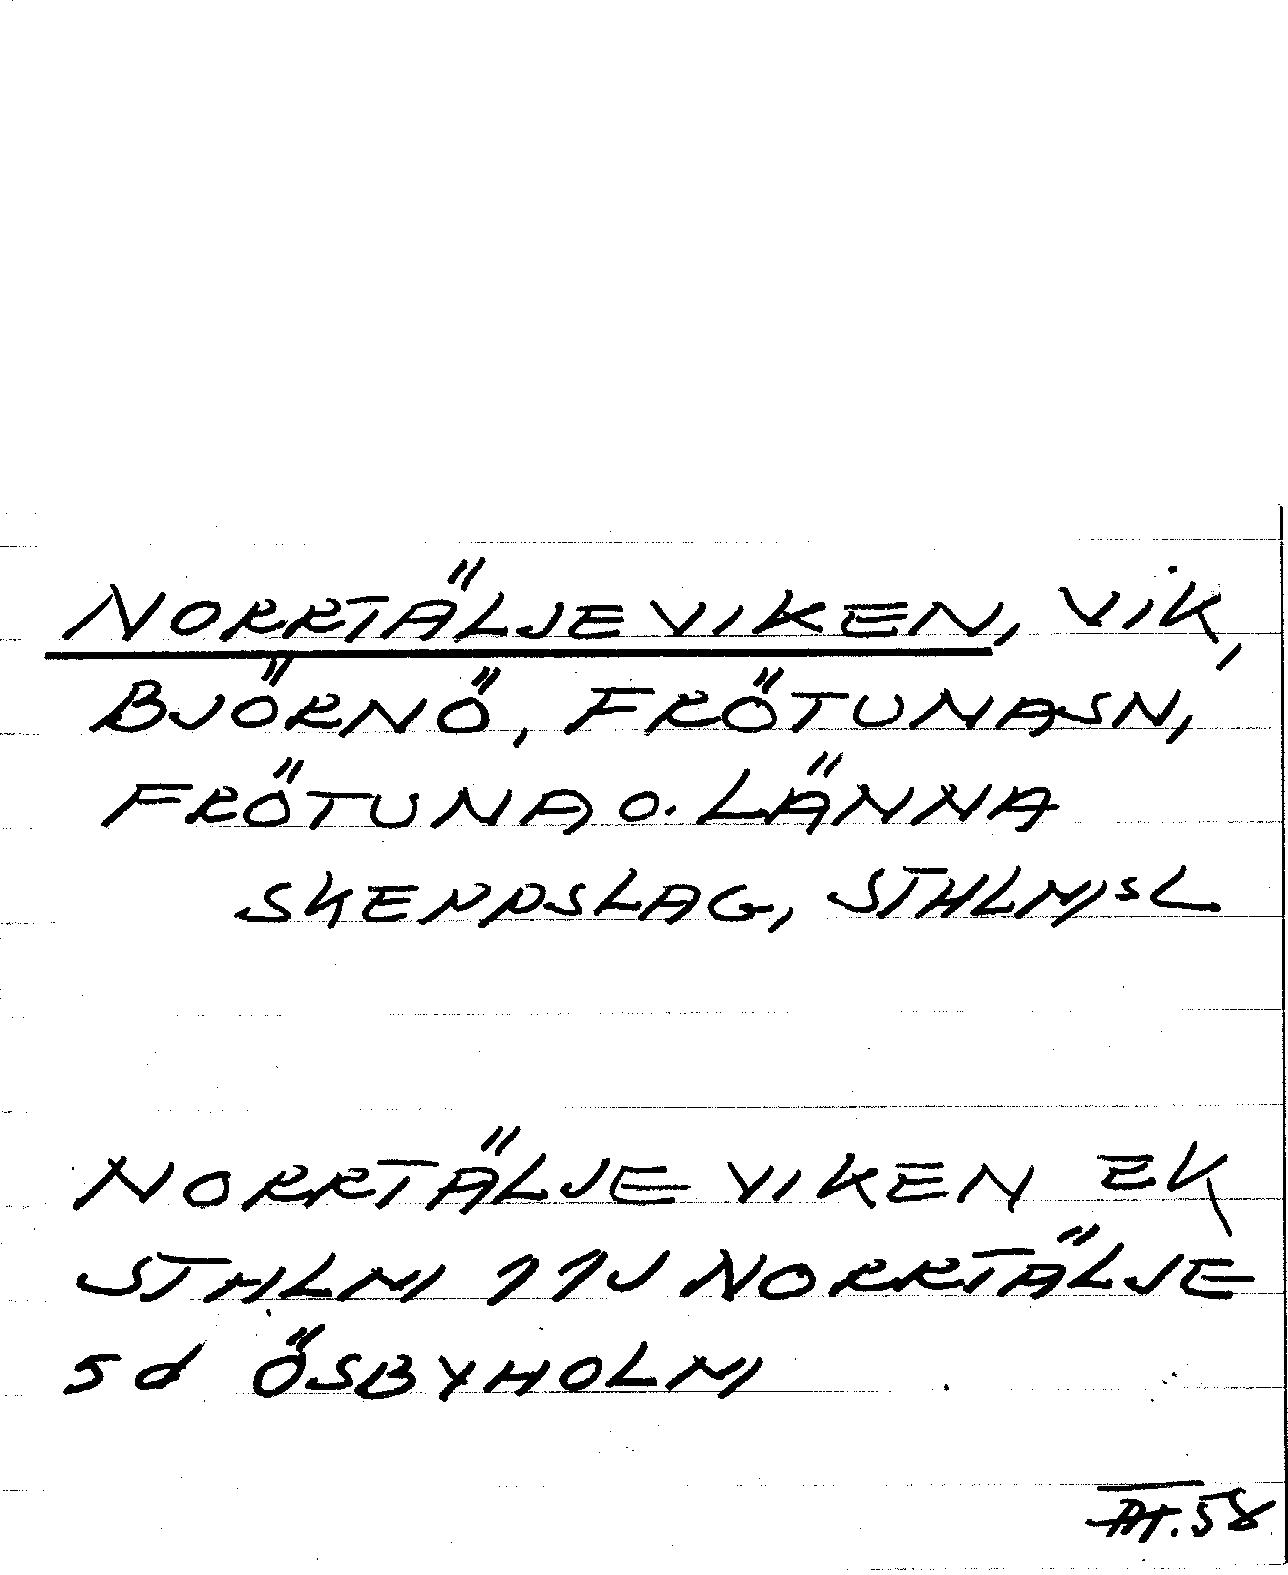 NORRTÄLJEVIKEN, VIK,
BJÖRNÖ, FRÖTUNASN,
FRÖTUNA O. LÄNNA
SKEPPSLAG, STHLMSL
NORRTÄLJEVIKEN EK
STHLM 11J NORRTÄLJE
5d ÖSBYHOLM